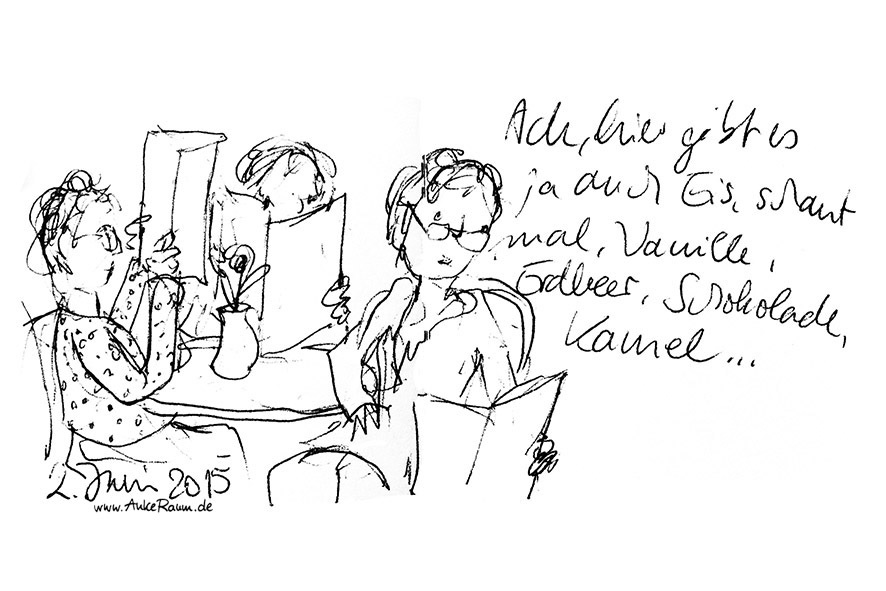 Ach, hier gibt es
ja auch Eis, schaut
mal, Vanille,
Erdbeer, Schokolade,
Kamel...
2. Juni 2015
www.AnkeRaum.de